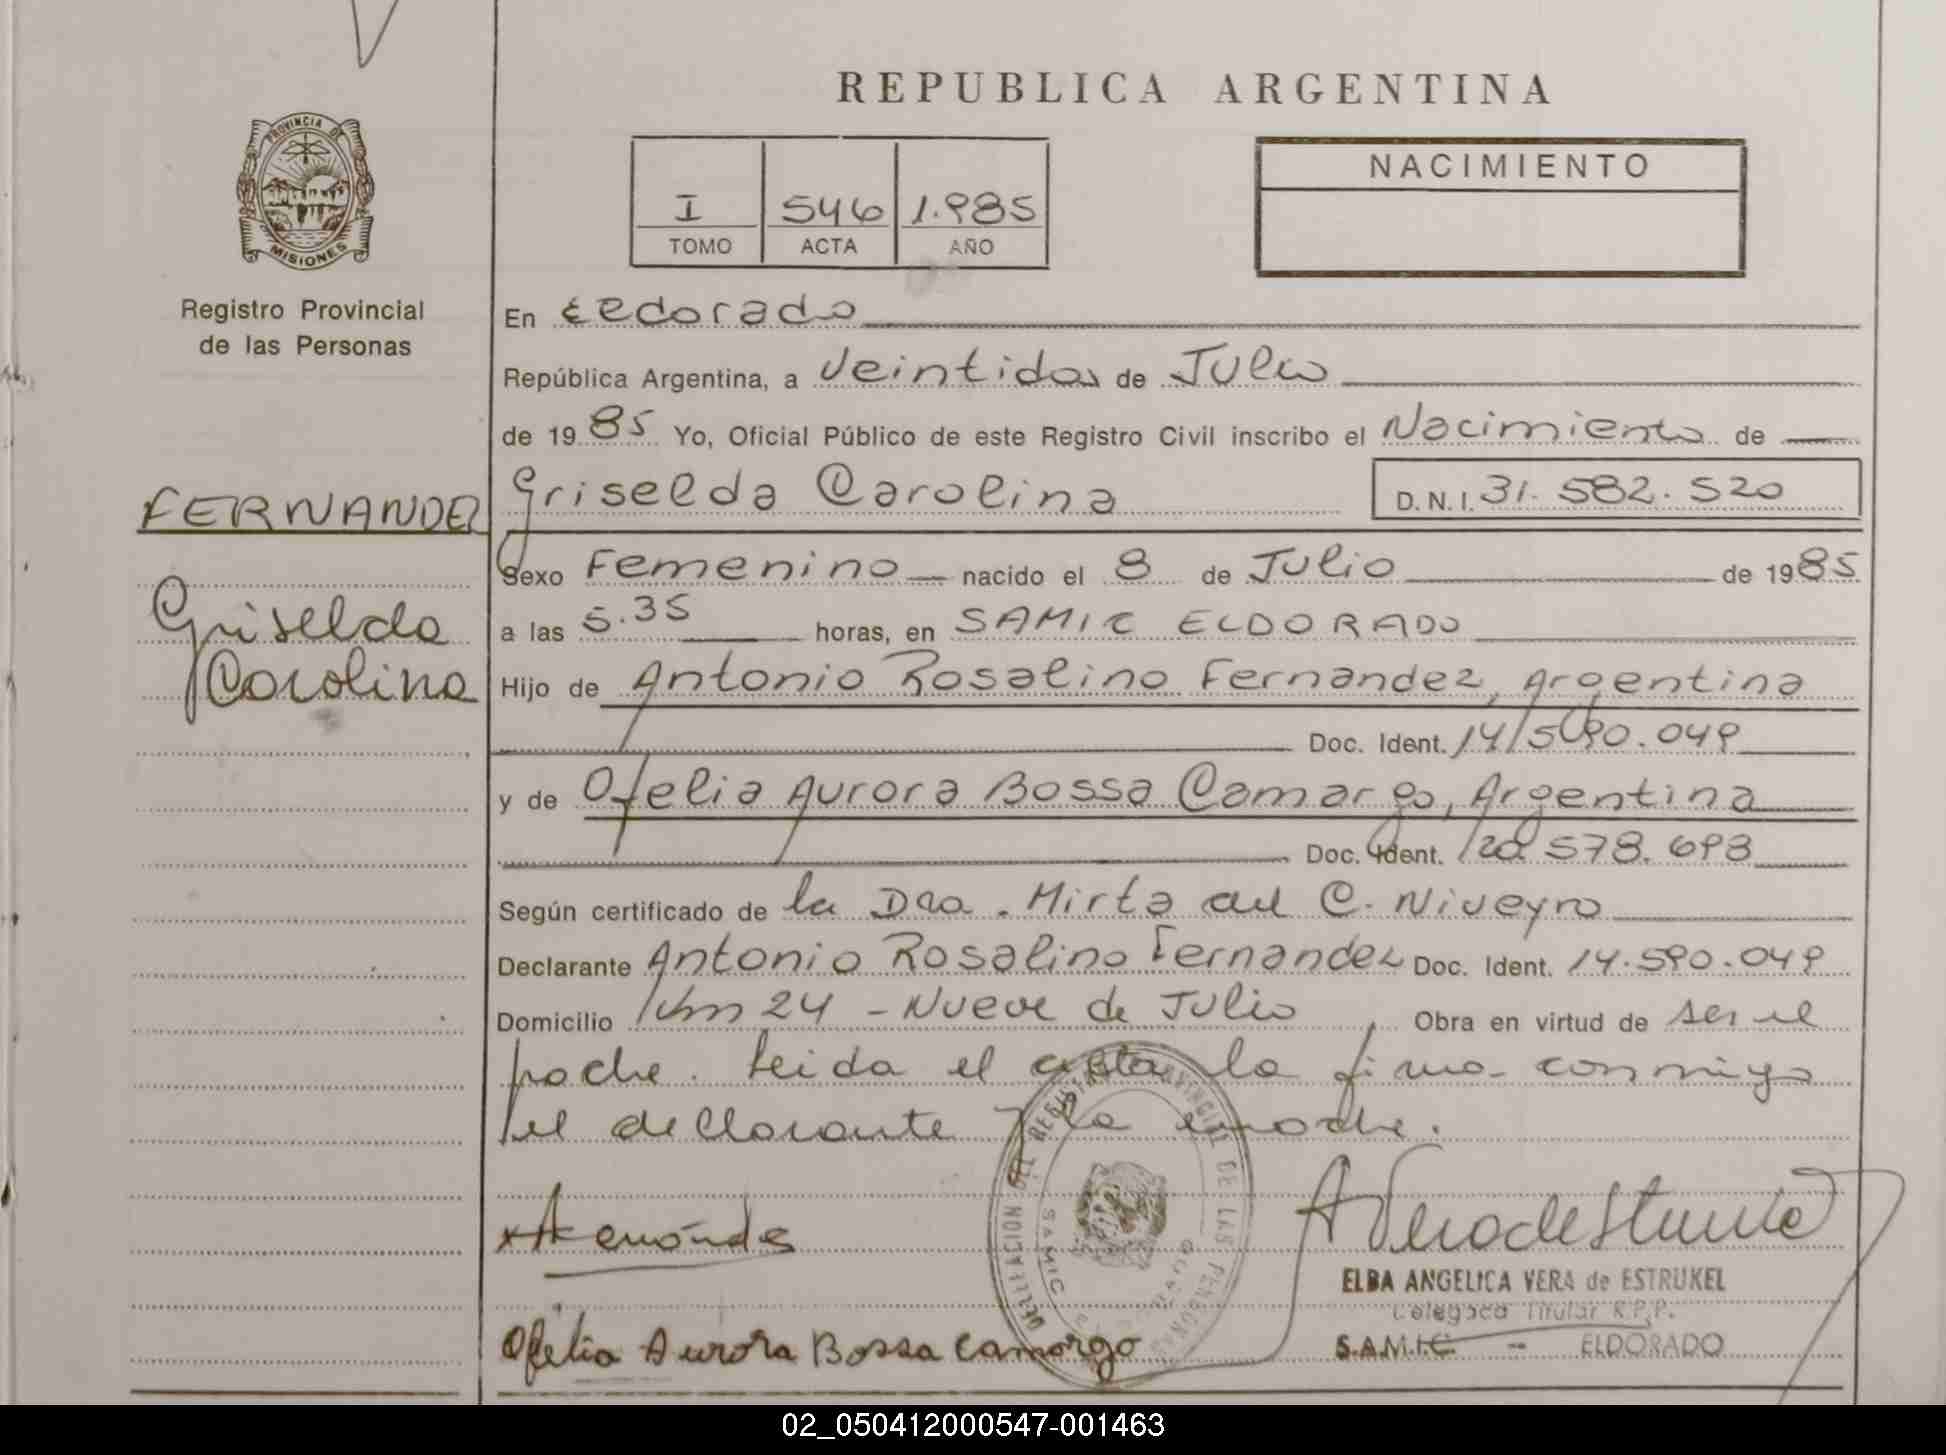 REPUBLICA ARGENTINA
PROVINCIA DE MISIONES
Registro Provincial
de las Personas
I 546 1.985
TOMO ACTA AÑO
NACIMIENTO
En Eldorado
República Argentina, a Veintidos de Julio
de 19 85 Yo, Oficial Público de este Registro Civil inscribo el Nacimiento de
FERNANDEZ
Griselda Carolina D.N.I. 31.582.520
Griselda
Carolina
Sexo Femenino nacido el 8 de Julio de 1985
a las 5.35 horas, en SAMIC ELDORADO
Hijo de Antonio Rosalino Fernandez, Argentina
Doc. Ident. 14.590.049
y de Ofelia Aurora Bossa Camargo, Argentina
Doc. Ident. 20.578.693
Según certificado de la Dra. Mirta del C. Niveyro
Declarante Antonio Rosalino Fernandez Doc. Ident. 14.590.049
Domicilio Km 24 - Nueve de Julio, Obra en virtud de ser el
padre. Leida el acta la firma conmigo
el declarante y la madre.
Ofelia Aurora Bossa Camargo
DELEGACION DEL REGISTRO PROVINCIAL DE LAS PERSONAS
SAMIC ELDORADO
ELBA ANGELICA VERA de ESTRUKEL
Delegada Titular R.P.P.
S.A.M.I.C. - ELDORADO
02_050412000547-001463